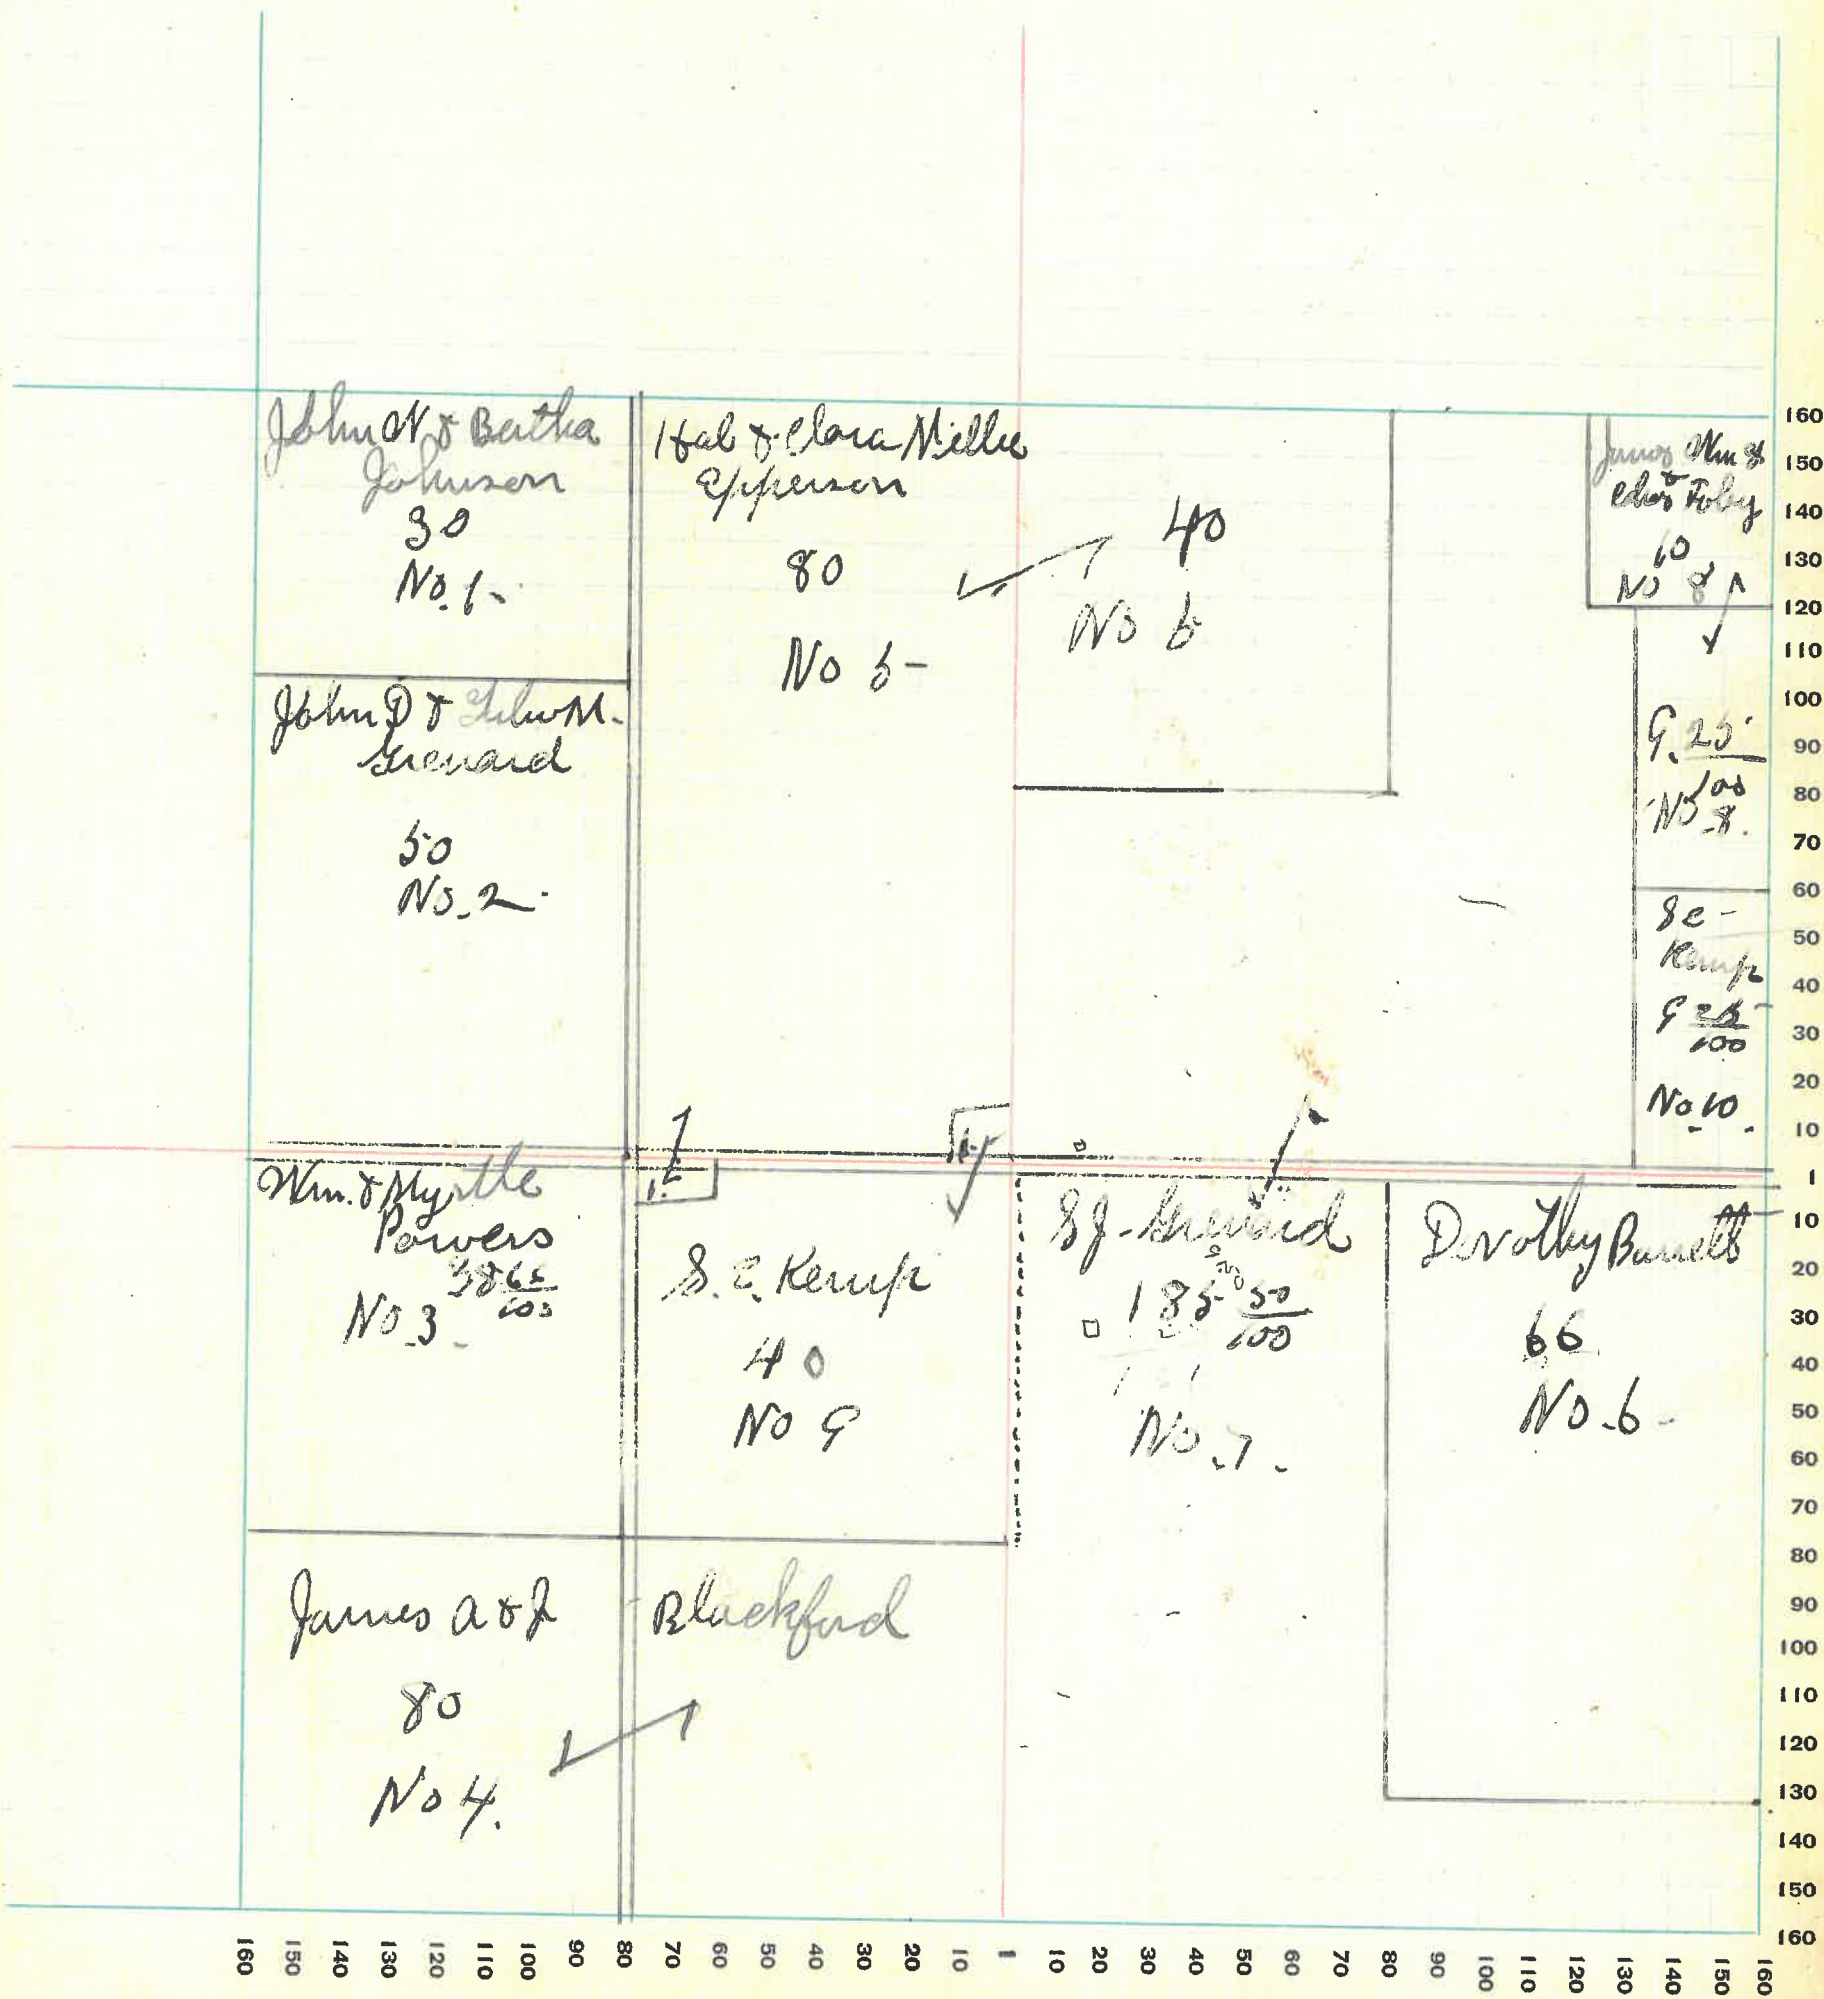 John N & Bertha
Johnson
30
No. 1-
Hal & Clara Millie
Epperson
80
No 5-
40
No 5
James Wm &
Toby
10
No 8
John D & M.
Grenard
50
No. 2-
9. 25
100
No 8.
S C -
Kemp
9 25
100
No 10.
Wm. & Myrtle
Powers
38 65
100
No. 3-
1.5
S. C. Kemp
40
No 9
S J - Grenard
185 50
100
No. 7.
Dorothy Barrett
66
No. 6-
James A & J Blackford
80
No 4.
160
150
140
130
120
110
100
90
80
70
60
50
40
30
20
10
1
10
20
30
40
50
60
70
80
90
100
110
120
130
140
150
160
160 150 140 130 120 110 100 90 80 70 60 50 40 30 20 10 1 10 20 30 40 50 60 70 80 90 100 110 120 130 140 150 160